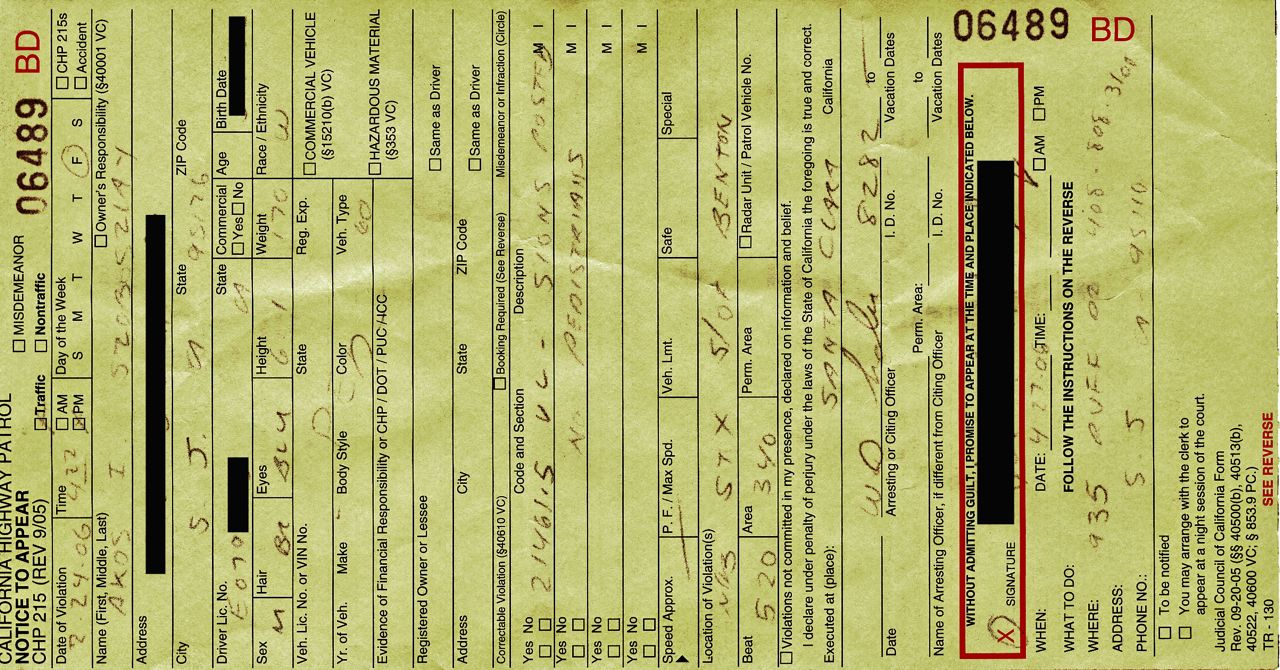 CALIFORNIA HIGHWAY PATROL
NOTICE TO APPEAR
CHP 215 (REV 9/05)
☐ MISDEMEANOR
Traffic ☐ Nontraffic
06489 BD
Date of Violation Time ☐ AM PM Day of the Week S M T W T F S ☐ CHP 215s ☐ Accident
2-24-06
Name (First, Middle, Last) ☐ Owner's Responsibility (§40001 VC)
AKOS I.
Address
City State ZIP Code
S. J. CA 95126
Driver Lic. No. State Commercial ☐ Yes ☐ No Age Birth Date
CA
Sex Hair Eyes Height Weight Race / Ethnicity
M BLU 6-1 170 W
Veh. Lic. No. or VIN No. State Reg. Exp. ☐ COMMERCIAL VEHICLE (§15210(b) VC)
Yr. of Veh. Make Body Style Color Veh. Type
PED 60
☐ HAZARDOUS MATERIAL (§353 VC)
Evidence of Financial Responsibility or CHP / DOT / PUC / ICC
Registered Owner or Lessee ☐ Same as Driver
Address City State ZIP Code ☐ Same as Driver
Correctable Violation (§40610 VC) ☐ Booking Required (See Reverse) Misdemeanor or Infraction (Circle)
Yes No Code and Section Description
☐ ☐ 21461.5 VC - SIGNS POSTED M I
Yes No
☐ ☐ NO PEDISTRIANS M I
Yes No
☐ ☐ M I
Yes No
☐ ☐ M I
Speed Approx. P. F. / Max Spd. Veh. Lmt. Safe Special
Location of Violation(s)
S/OF BENTON
Beat Area Perm. Area ☐ Radar Unit / Patrol Vehicle No.
520 340
☐ Violations not committed in my presence, declared on information and belief.
I declare under penalty of perjury under the laws of the State of California the foregoing is true and correct.
Executed at (place): SANTA CLARA California
8282
Date Arresting or Citing Officer I. D. No. to Vacation Dates
Perm. Area:
Name of Arresting Officer, if different from Citing Officer I. D. No. to Vacation Dates
WITHOUT ADMITTING GUILT, I PROMISE TO APPEAR AT THE TIME AND PLACE INDICATED BELOW.
X SIGNATURE
06489 BD
WHEN: DATE: 4-27-06 TIME: ☐ AM ☐ PM
WHAT TO DO: FOLLOW THE INSTRUCTIONS ON THE REVERSE
WHERE: 935 408-808-
ADDRESS: S. J. CA 95110
PHONE NO.:
☐ To be notified
☐ You may arrange with the clerk to
appear at a night session of the court.
Judicial Council of California Form
Rev. 09-20-05 (§§ 40500(b), 40513(b),
40522, 40600 VC; § 853.9 PC.)
TR - 130 SEE REVERSE